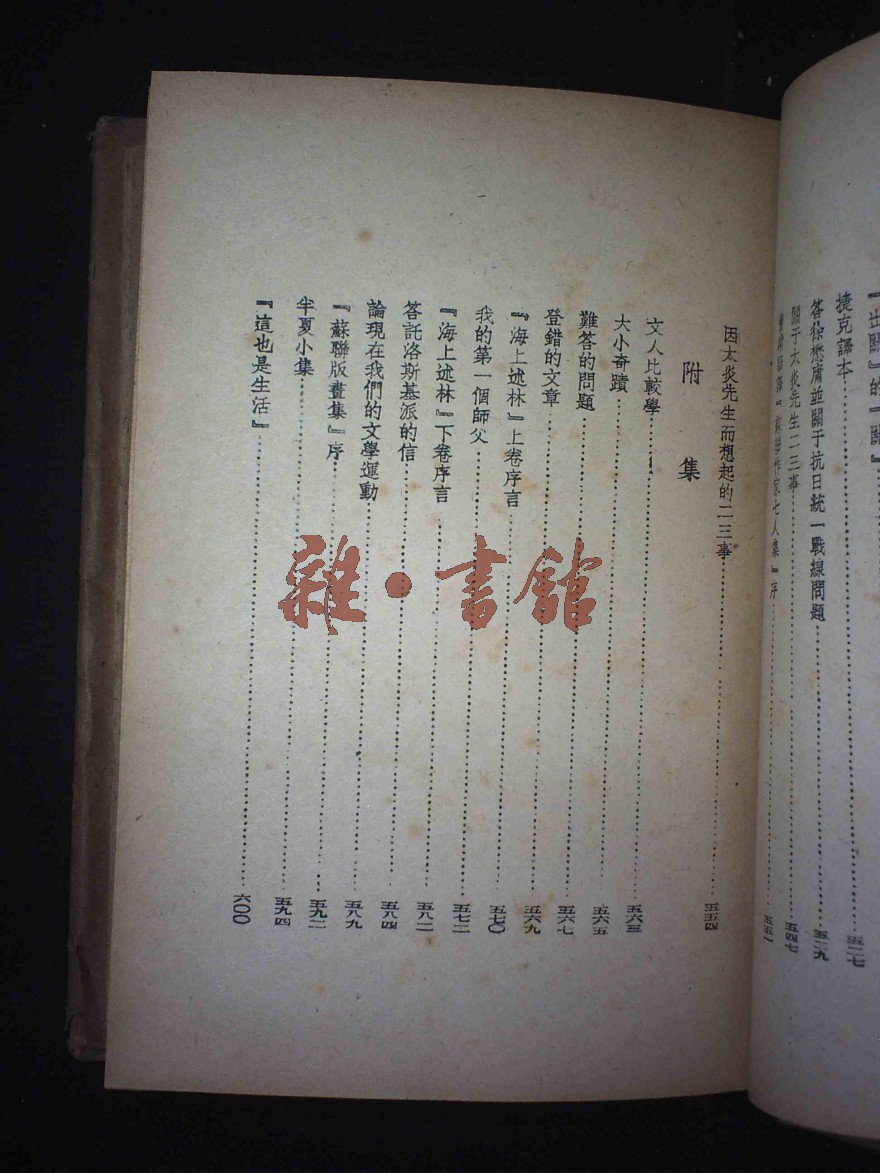 『出關』的『關』
捷克譯本 五二七
答徐懋庸並關于抗日統一戰線問題 五二九
關于太炎先生二三事 五四七
『蘇聯作家七人集』序 五五一
因太炎先生而想起的二三事 五五四
附集
文人比較學 五六三
大小奇蹟 五六五
難答的問題 五六七
登錯的文章 五六九
『海上述林』上卷序言 五七〇
我的第一個師父 五七二
『海上述林』下卷序言 五八二
答託洛斯基派的信 五八四
論現在我們的文學運動 五八九
『蘇聯版畫集』序 五九二
半夏小集 五九四
『這也是生活』 六〇〇
雜·書館